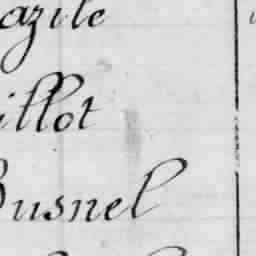 azile
illot
Busnel